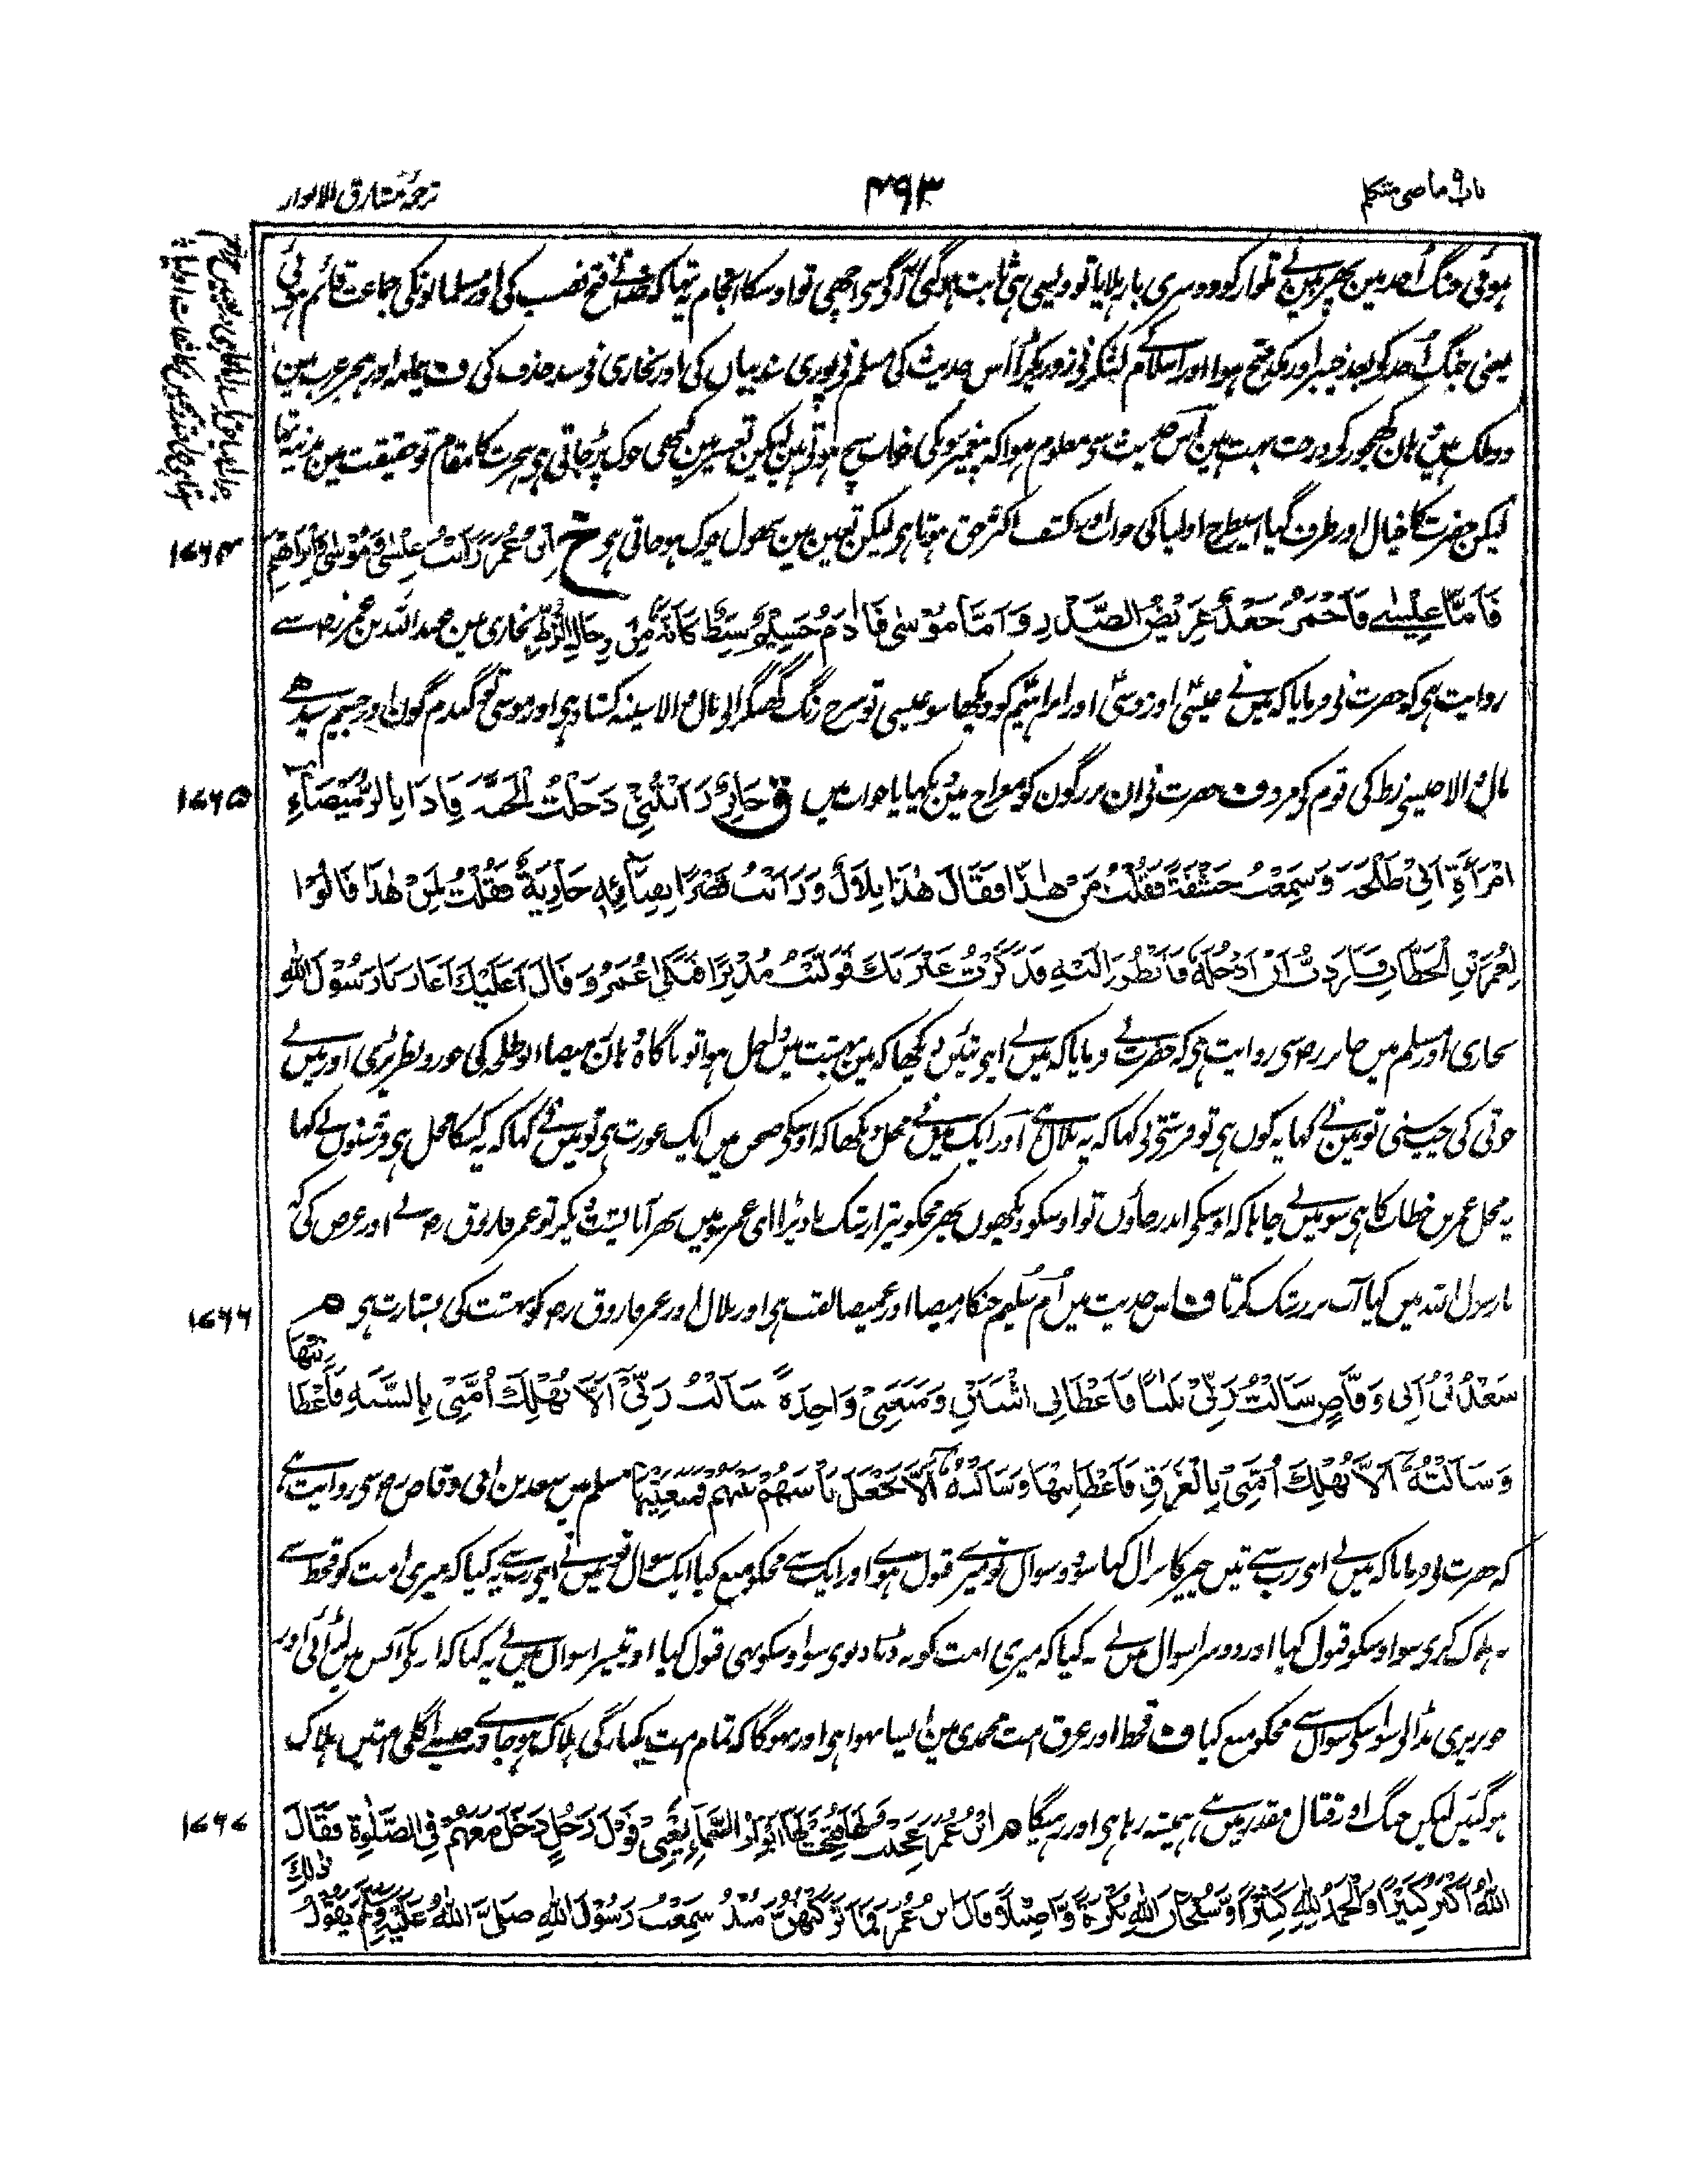 باب ٩ ماضی متکلم
٤٩٣
ترجمۂ مشارق الانوار
ہوئی جنگ اُحد مین پھر مین نے تلوار کو دوسری بار ہلایا تو ویسی ہی ثابت ہوگئی آگے سی اچھی تو اوسکا انجام یہ تھا کہ خدا نے فتح نصیب کی اور مسلمانونکی جماعت قائم ہوئی
یعنی جنگ اُحد کو بعد خیبر اور مکہ فتح ہوا اور اسلام کے لشکر نی زور پکڑا اس حدیث کی مسلم نی پوری سند بیاں کی اور بخاری نی سند حذف کی ف یمامہ اور ہجر عرب مین
دو ملک ہین وہان کھجور کی درخت بہت ہین اس حدیث سو معلوم ہوا کہ پیغمبرونکی خواب سچ ہوتی ہین لیکن تعبیر مین کبھی چوک پڑجاتی ہی ہجرت کا مقام تو حقیقت مین مدینہ تھا
لیکن حضرت کا خیال اور طرف گیا اسیطرح اولیا کی خواب اور کشف اکثر حق ہوتا ہو لیکن تعین مین بھول چوک ہوجاتی ہو خ ابْنُ عُمَرَ رَاَيْتُ عِيْسٰى وَمُوْسٰى وَاِبْرَاهِيْمَ
١٧٦٤
فَاَمَّا عِيْسٰى فَاَحْمَرُ جَعْدٌ عَرِيْضُ الصَّدْرِ وَاَمَّا مُوْسٰى فَاٰدَمُ جَسِيْمٌ سَبْطٌ كَاَنَّهٗ مِنْ رِجَالِ الزُّطِّ بخاری مین عبداللہ بن عمر رضہ سے
روایت ہی کو حضرت نی فرمایا کہ مین نے عیسیٰ اور موسیٰ اور ابراہیم کو دیکھا سو عیسی تو سرخ رنگ گھنگرالی بال والا سینہ کشادہ ہی اور موسی تو گندم گون اور جسیم سیدھے
بال والا جیسی زط کی قوم کو مرد ف حضرت نی ان بزرگون کو معراج مین دیکھا یا خواب میں ق جَابِرٌ رَاَيْتُنِىْ دَخَلْتُ الْجَنَّةَ فَاِذَا بِالرُّمَيْصَاءِ
١٧٦٥
امْرَاَةِ اَبِىْ طَلْحَةَ وَسَمِعْتُ خَشْفَةً فَقُلْتُ مَنْ هٰذَا فَقَالَ هٰذَا بِلَالٌ وَرَاَيْتُ قَصْرًا بِفِنَائِهٖ جَارِيَةٌ فَقُلْتُ لِمَنْ هٰذَا قَالُوْا
لِعُمَرَ بْنِ الْخَطَّابِ فَاَرَدْتُ اَنْ اَدْخُلَهٗ فَاَنْظُرَ اِلَيْهِ فَذَكَرْتُ غَيْرَتَكَ فَوَلَّيْتُ مُدْبِرًا فَبَكٰى عُمَرُ وَقَالَ اَعَلَيْكَ اَغَارُ يَا رَسُوْلَ اللّٰهِ
بخاری اور مسلم میں جابر رضہ سی روایت ہی کہ حضرت نے فرمایا کہ میں نے اپنی تئیں دیکھا کہ مین بہشت میں داخل ہوا تو ناگاہ وہان رمیصا ابو طلحہ کی جورو نظر پڑی اور میں نے
جوتی کی چپ سنی تو مین نے کہا یہ کون ہی تو فرشتی نی کہا کہ یہ بلال ہے اور ایک میں نے محل دیکھا کہ اوسکی صحن میں ایک عورت ہی تو میں نے کہا کہ یہ کسکا محل ہی فرشتوں نے کہا
یہ محل عمر بن خطاب کا ہی سو میں نے چاہا کہ اوسکی اندر جاؤں تو اوسکو دیکھوں پھر مجکو تیرا رشک یاد پڑا ای عمر سو میں پھر آیا پشت دیکر تو عمر فاروق رضہ نے اور عرض کی کہ
یا رسول اللہ میں کیا آپ پر رشک کرتا ف اس حدیث میں اُم سُلیم جنکا رمیصا اور غمیصا لقب ہی اور بلال اور عمر فاروق رضہ کو بہشت کی بشارت ہی م
١٧٦٦
سَعْدُ بْنُ اَبِىْ وَقَّاصٍ سَاَلْتُ رَبِّىْ ثَلٰثًا فَاَعْطَانِى اثْنَتَيْنِ وَمَنَعَنِىْ وَاحِدَةً سَاَلْتُ رَبِّىْ اَلَّا يُهْلِكَ اُمَّتِىْ بِالسَّنَةِ فَاَعْطَا
نِيْهَا
وَسَاَلْتُهٗ اَلَّا يُهْلِكَ اُمَّتِىْ بِالْغَرَقِ فَاَعْطَانِيْهَا وَسَاَلْتُهٗ اَلَّا يَجْعَلَ بَاْسَهُمْ بَيْنَهُمْ فَمَنَعَنِيْهَا مسلم میں سعد بن ابی وقاص رضہ سی روایت ہے
کہ حضرت نی فرمایا کہ میں نے اپنی رب سے تین چیز کا سوال کیا سو دو سوال تو میرے قبول ہوے اور ایک سے مجکو منع کیا ایک سوال تو میں نے اپنی رب سے یہ کیا کہ میری امت کو قحط سے
نہ ہلاک کری سو اوسکو قبول کیا اور دوسرا سوال میں نے یہ کیا کہ میری امت کو نہ ڈبا دیوی سو اوسکو بھی قبول کیا اور تیسرا سوال میں نے یہ کیا کہ انکی آپس میں لڑائی اور
خونریزی نہ ڈالی سو اوسکی سوال سے مجکو منع کیا ف قحط اور غرق امت محمدی مین ایسا نہوا ہی اور نہوگا کہ تمام امت یکبارگی ہلاک ہوجاوے جیسے اگلی امتیں ہلاک
ہوگئیں لیکن جنگ اور قتال مقدر میں ہے ہمیشہ رہا ہی اور رہیگا م ابْنُ عُمَرَ عَجِبْتُ لَهَا فُتِحَتْ لَهَا اَبْوَابُ السَّمَاءِ يَعْنِىْ قَوْلَ رَجُلٍ دَخَلَ مَعَهُمْ فِى الصَّلٰوةِ فَقَالَ
١٧٦٧
اللّٰهُ اَكْبَرُ كَبِيْرًا وَالْحَمْدُ لِلّٰهِ كَثِيْرًا وَسُبْحَانَ اللّٰهِ بُكْرَةً وَاَصِيْلًا وَقَالَ ابْنُ عُمَرَ فَمَا تَرَكْتُهُنَّ مُنْذُ سَمِعْتُ رَسُوْلَ اللّٰهِ صَلَّى اللّٰهُ عَلَيْهِ وَسَلَّمَ يَقُوْلُ
ذٰلِكَ